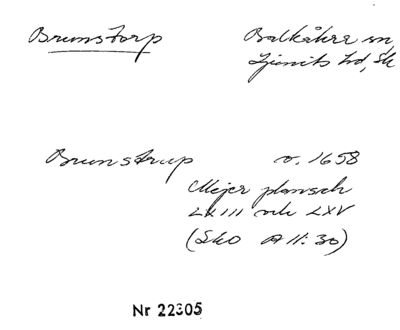 Brunstorp
Balkåkra sn
Ljunits hd, Sk
Brunstrup o. 1658
Mejer plansch
LXIII och LXV
(SkO A II: 30)
Nr 22305